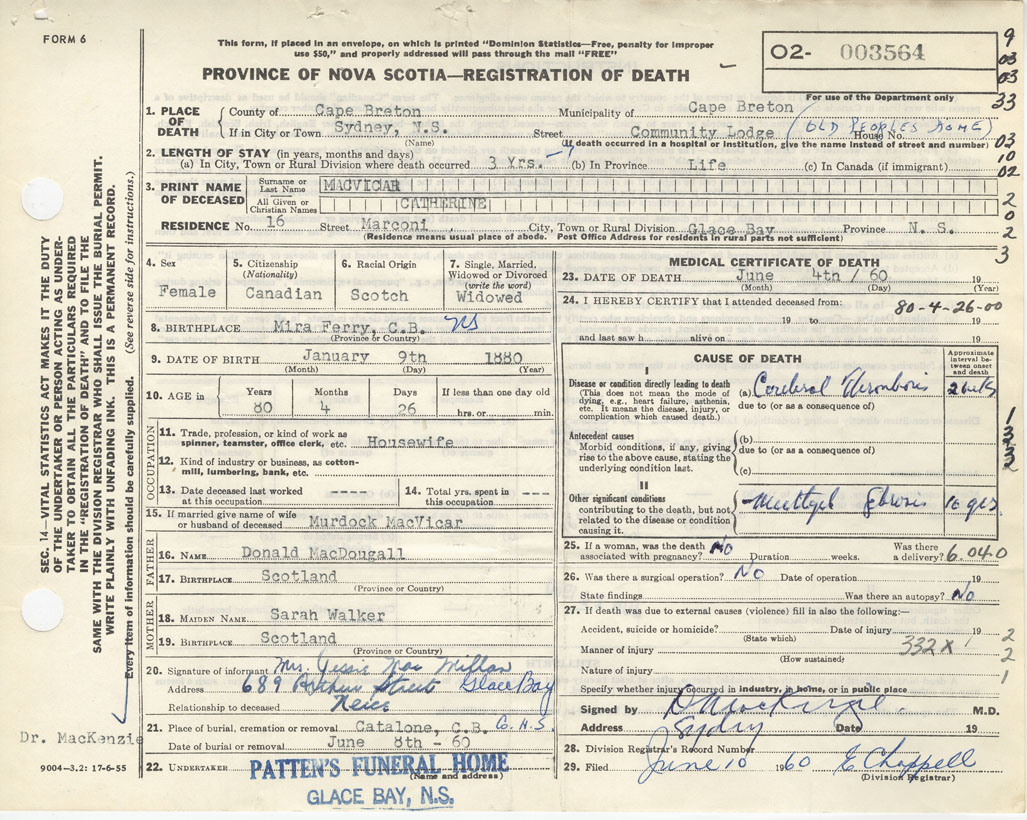 FORM 6
This form, if placed in an envelope, on which is printed "Dominion Statistics—Free, penalty for improper
use $50," and properly addressed will pass through the mail "FREE"
PROVINCE OF NOVA SCOTIA—REGISTRATION OF DEATH
02- 003564
For use of the Department only
9
03
03
33
03
10
02
2
0
2
3
1. PLACE OF DEATH
County of Cape Breton Municipality of Cape Breton
If in City or Town Sydney, N.S. Street Community Lodge House No. (OLD PEOPLES HOME)
(Name) (If death occurred in a hospital or institution, give the name instead of street and number)
2. LENGTH OF STAY (in years, months and days)
(a) In City, Town or Rural Division where death occurred 3 Yrs. (b) In Province Life (c) In Canada (if immigrant)
3. PRINT NAME OF DECEASED
Surname or Last Name MACVICAR
All Given or Christian Names CATHERINE
RESIDENCE No. 16 Street Marconi City, Town or Rural Division Glace Bay Province N. S.
(Residence means usual place of abode. Post Office Address for residents in rural parts not sufficient)
4. Sex
Female
5. Citizenship
(Nationality)
Canadian
6. Racial Origin
Scotch
7. Single, Married,
Widowed or Divorced
(write the word)
Widowed
8. BIRTHPLACE Mira Ferry, C.B. NS
(Province or Country)
9. DATE OF BIRTH January 9th 1880
(Month) (Day) (Year)
10. AGE in
Years Months Days If less than one day old
80 4 26 hrs. or min.
OCCUPATION
11. Trade, profession, or kind of work as
spinner, teamster, office clerk, etc. Housewife
12. Kind of industry or business, as cotton-
mill, lumbering, bank, etc.
13. Date deceased last worked
at this occupation. ----
14. Total yrs. spent in
this occupation ---
15. If married give name of wife
or husband of deceased Murdock MacVicar
FATHER
16. NAME Donald MacDougall
17. BIRTHPLACE Scotland
(Province or Country)
MOTHER
18. MAIDEN NAME Sarah Walker
19. BIRTHPLACE Scotland
(Province or Country)
20. Signature of informant Mrs. Jessie MacMillan
Address 689 Arthur Street Glace Bay
Relationship to deceased Neice
21. Place of burial, cremation or removal Catalone, C.B. C.H.S.
Date of burial or removal June 8th - 60
22. UNDERTAKER PATTEN'S FUNERAL HOME
(Name and address)
GLACE BAY, N.S.
MEDICAL CERTIFICATE OF DEATH
23. DATE OF DEATH June 4th / 60 19
(Month) (Day) (Year)
24. I HEREBY CERTIFY that I attended deceased from:
80-4-26-00
19 to 19
and last saw h alive on 19
CAUSE OF DEATH
Approximate
interval be-
tween onset
and death
I
Disease or condition directly leading to death
(This does not mean the mode of
dying, e.g., heart failure, asthenia,
etc. It means the disease, injury, or
complication which caused death.)
(a) Cerebral Thrombosis 2 wks
due to (or as a consequence of)
Antecedent causes
Morbid conditions, if any, giving
rise to the above cause, stating the
underlying condition last.
(b)
due to (or as a consequence of)
(c)
II
Other significant conditions
contributing to the death, but not
related to the disease or condition
causing it.
10 yrs.
1
3
3
2
25. If a woman, was the death
associated with pregnancy? No Duration weeks. Was there
a delivery? 6.040
26. Was there a surgical operation? No Date of operation 19
State findings Was there an autopsy? No
27. If death was due to external causes (violence) fill in also the following:—
Accident, suicide or homicide? Date of injury 19
(State which)
Manner of injury 332X
(How sustained)
Nature of injury
2
2
1
Specify whether injury occurred in industry, in home, or in public place
Signed by D MacKenzie. M.D.
Address Sydney Date 19
28. Division Registrar's Record Number
29. Filed June 10 1960 E Chappell
(Division Registrar)
SEC. 14—VITAL STATISTICS ACT MAKES IT THE DUTY
OF THE UNDERTAKER OR PERSON ACTING AS UNDER-
TAKER TO OBTAIN ALL THE PARTICULARS REQUIRED
IN THE "REGISTRATION OF DEATH" AND TO FILE THE
SAME WITH THE DIVISION REGISTRAR WHO SHALL ISSUE THE BURIAL PERMIT.
WRITE PLAINLY WITH UNFADING INK. THIS IS A PERMANENT RECORD.
Every item of information should be carefully supplied. (See reverse side for instructions.)
Dr. MacKenzie
9004-3.2: 17-6-55